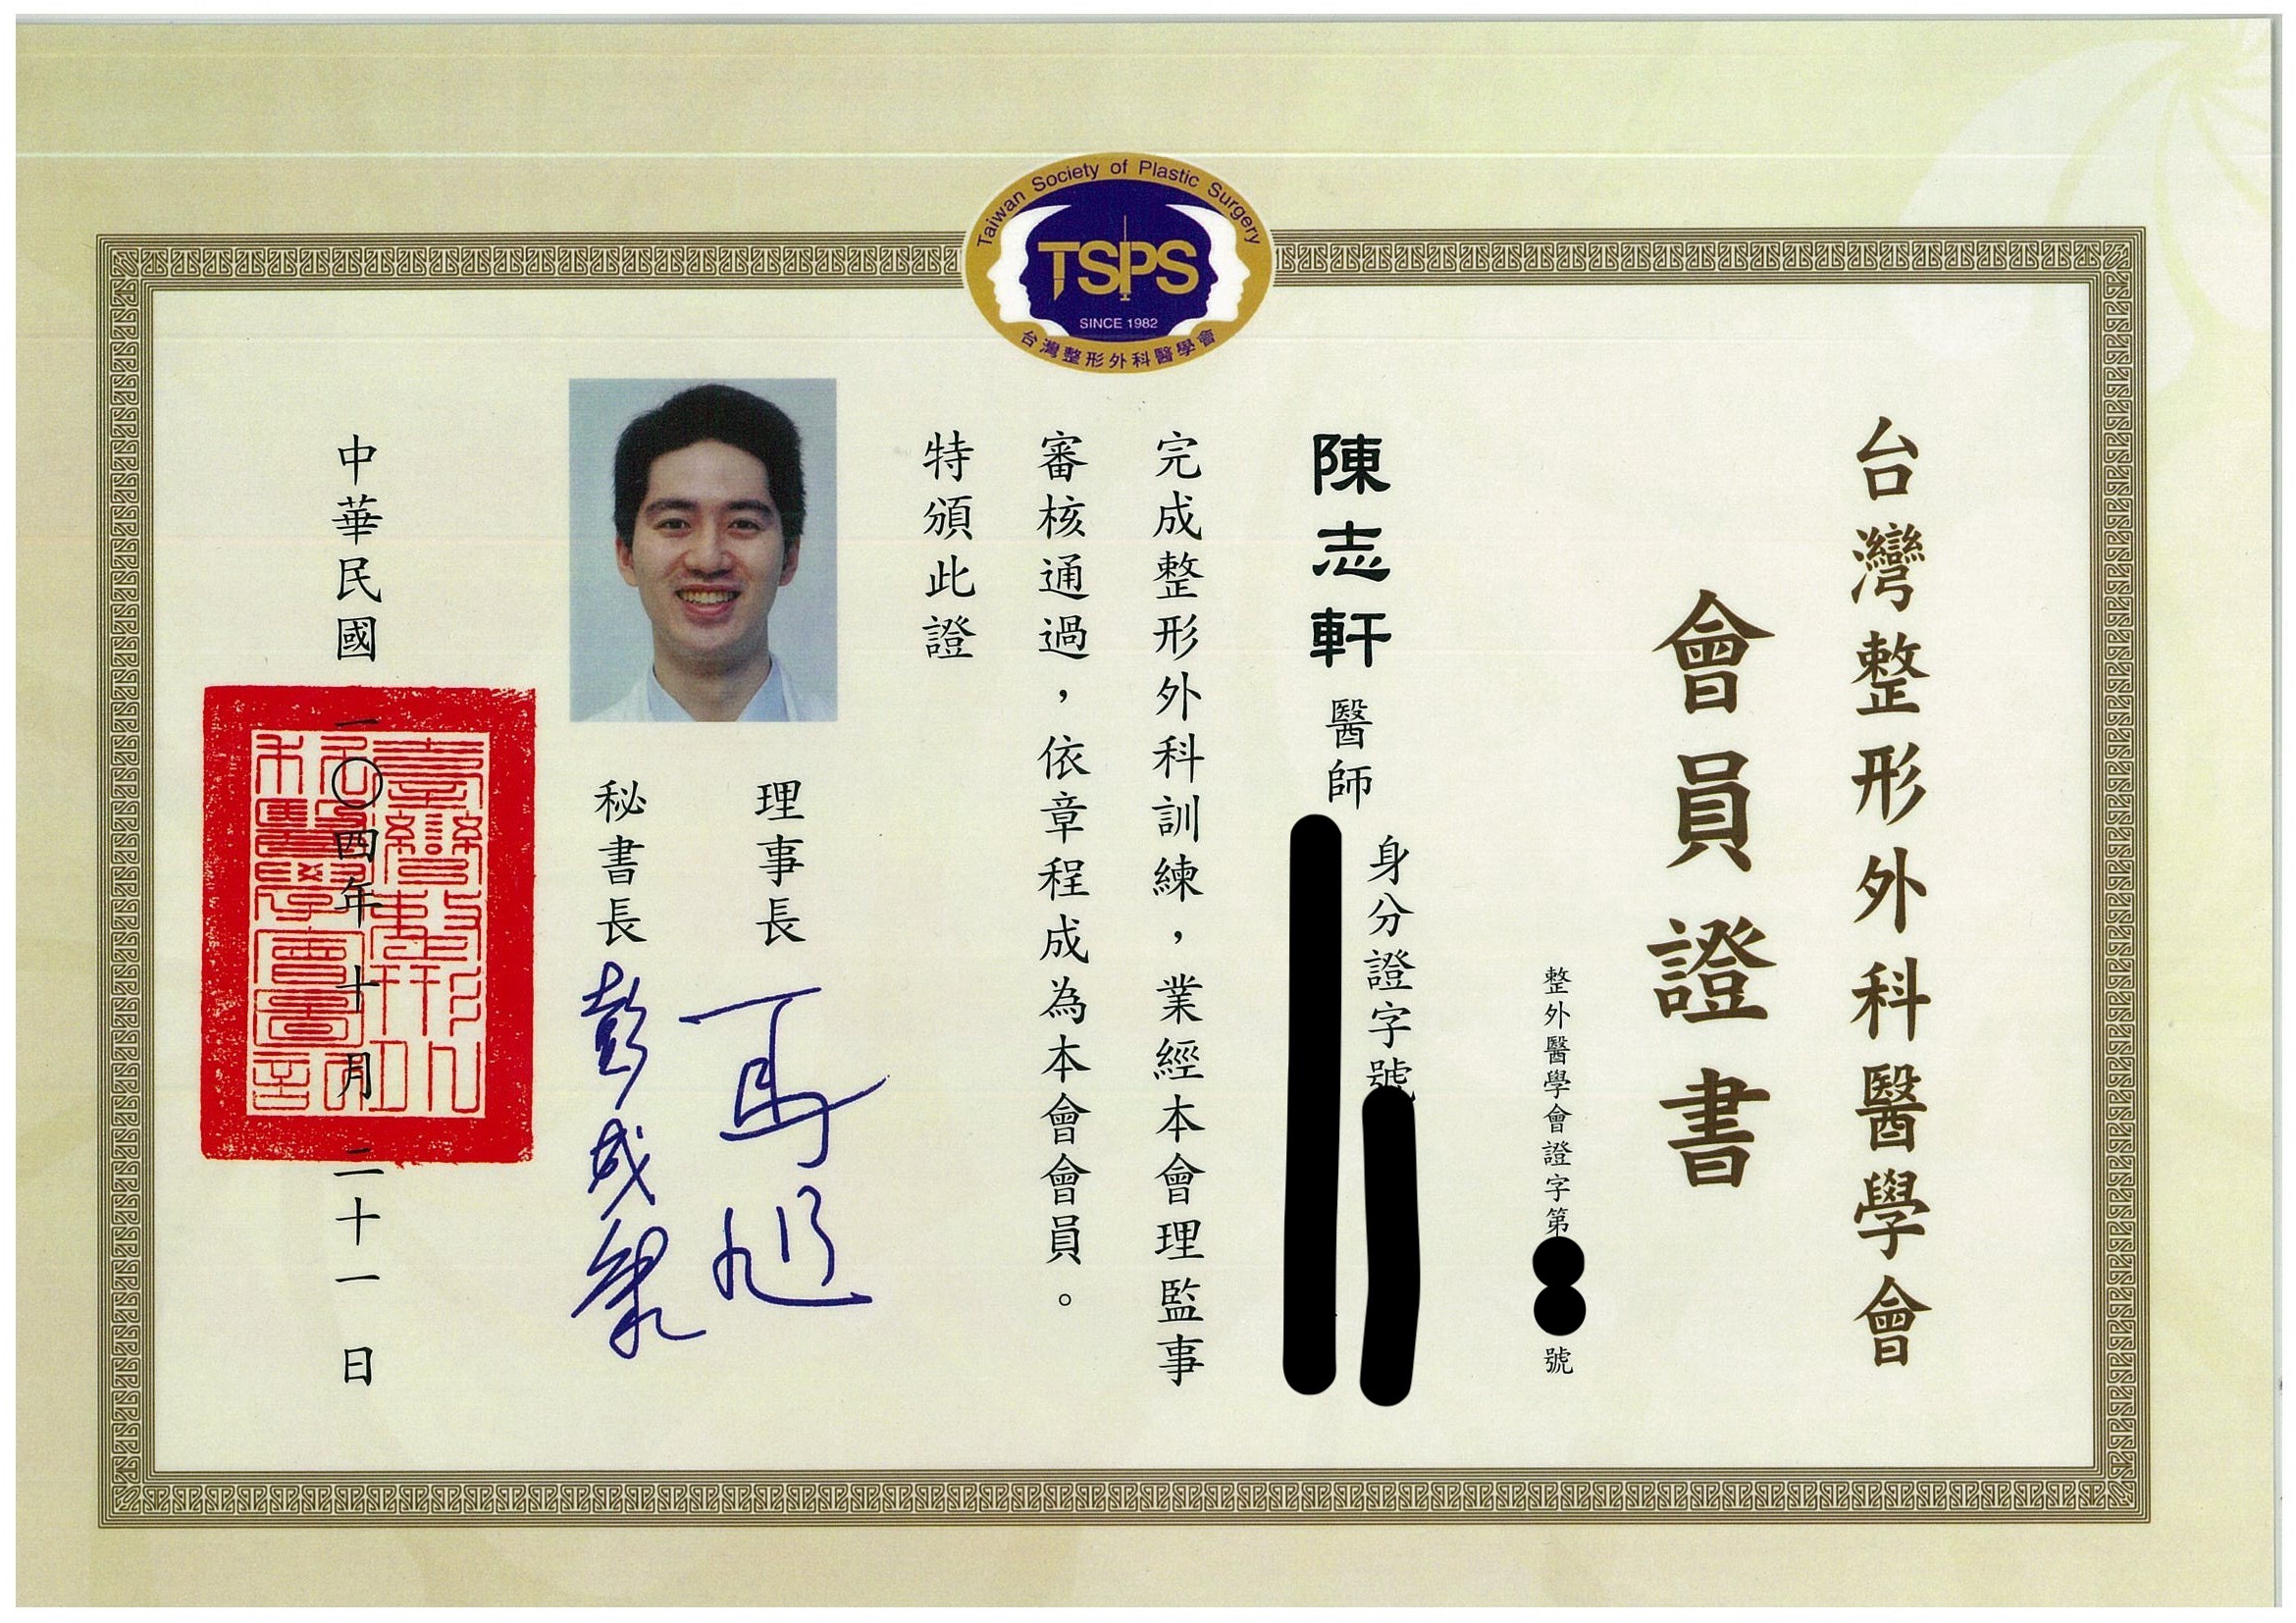 Taiwan Society of Plastic Surgery
TSPS
SINCE 1982
台灣整形外科醫學會
台灣整形外科醫學會
會員證書
整外醫學會證字第
號
身分證字號
陳志軒 醫師
完成整形外科訓練，業經本會理監事
審核通過，依章程成為本會會員。
特頒此證
理事長
秘書長 彭成康
中華民國一〇四年十月二十一日